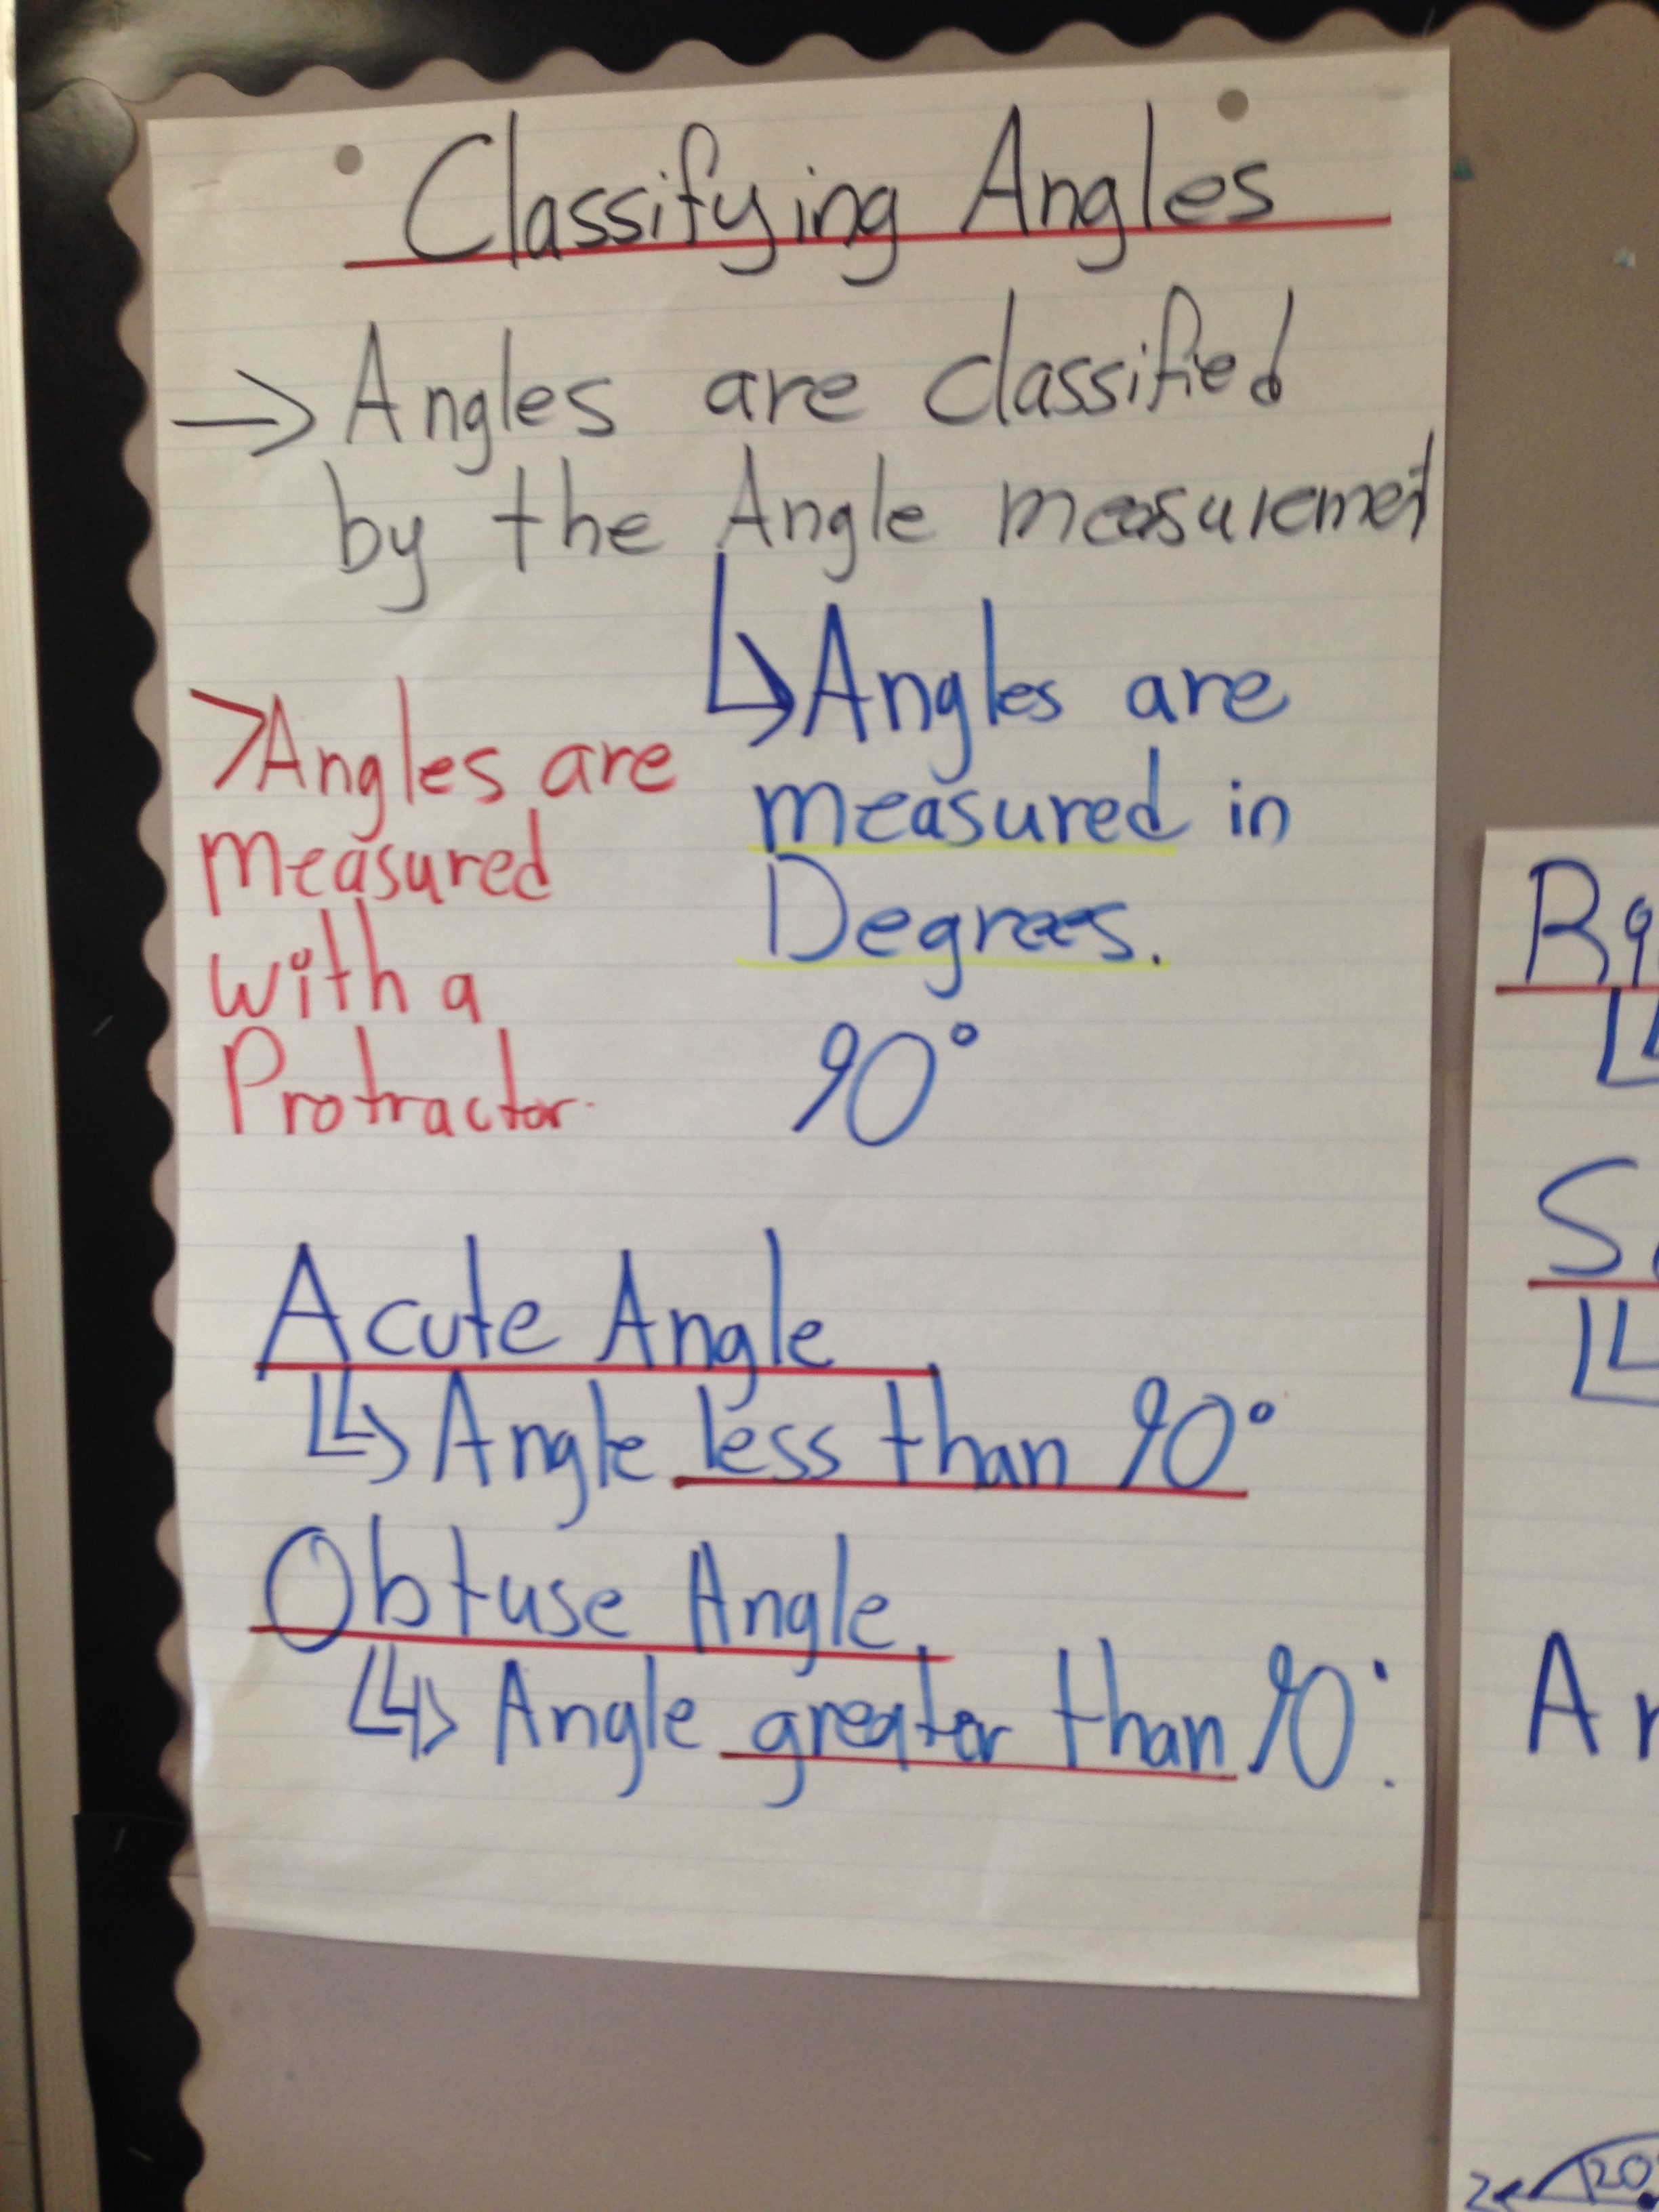 Classifying Angles
→ Angles are classified
by the Angle measurement
↳ Angles are
measured in
Degrees.
90°
>Angles are
measured
with a
Protractor.
Acute Angle
↳ Angle less than 90°
Obtuse Angle.
↳ Angle greater than 90°.